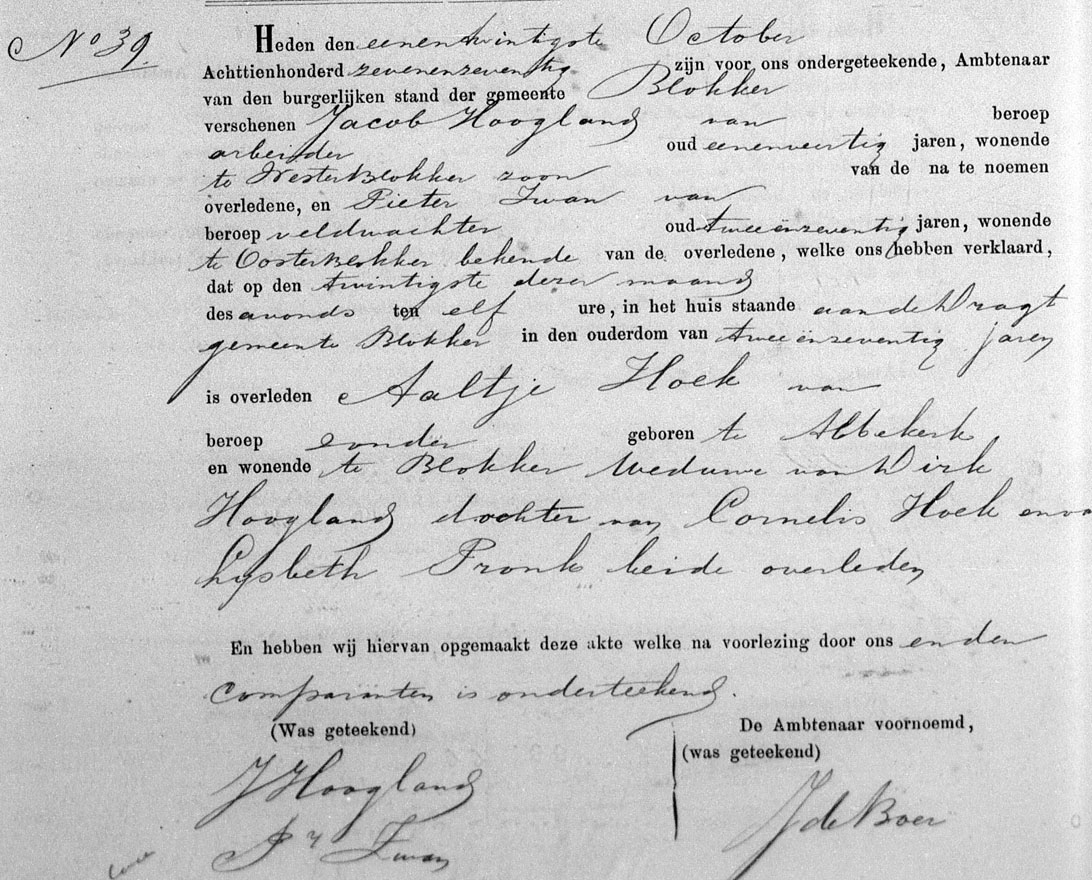 No 39.
Heden den eenentwintigste October
Achttienhonderd zevenenzeventig zijn voor ons ondergeteekende, Ambtenaar
van den burgerlijken stand der gemeente Blokker
verschenen Jacob Hoogland van beroep
arbeider oud eenenveertig jaren, wonende
te Westerblokker zoon van de na te noemen
overledene, en Pieter Zwan van
beroep veldwachter oud tweeënzeventig jaren, wonende
te Oosterblokker bekende van de overledene, welke ons hebben verklaard,
dat op den twintigste dezer maand
des avonds ten elf ure, in het huis staande aan de Dragt
gemeente Blokker in den ouderdom van tweeënzeventig jaren
is overleden Aaltje Hoek van
beroep zonder geboren te Abbekerk
en wonende te Blokker Weduwe van Dirk
Hoogland dochter van Cornelis Hoek en va
Lijsbeth Pronk beide overleden
En hebben wij hiervan opgemaakt deze akte welke na voorlezing door ons en den
comparanten is onderteekend.
(Was geteekend) De Ambtenaar voornoemd,
(was geteekend)
J Hoogland
J de Boer
Pr Zwan